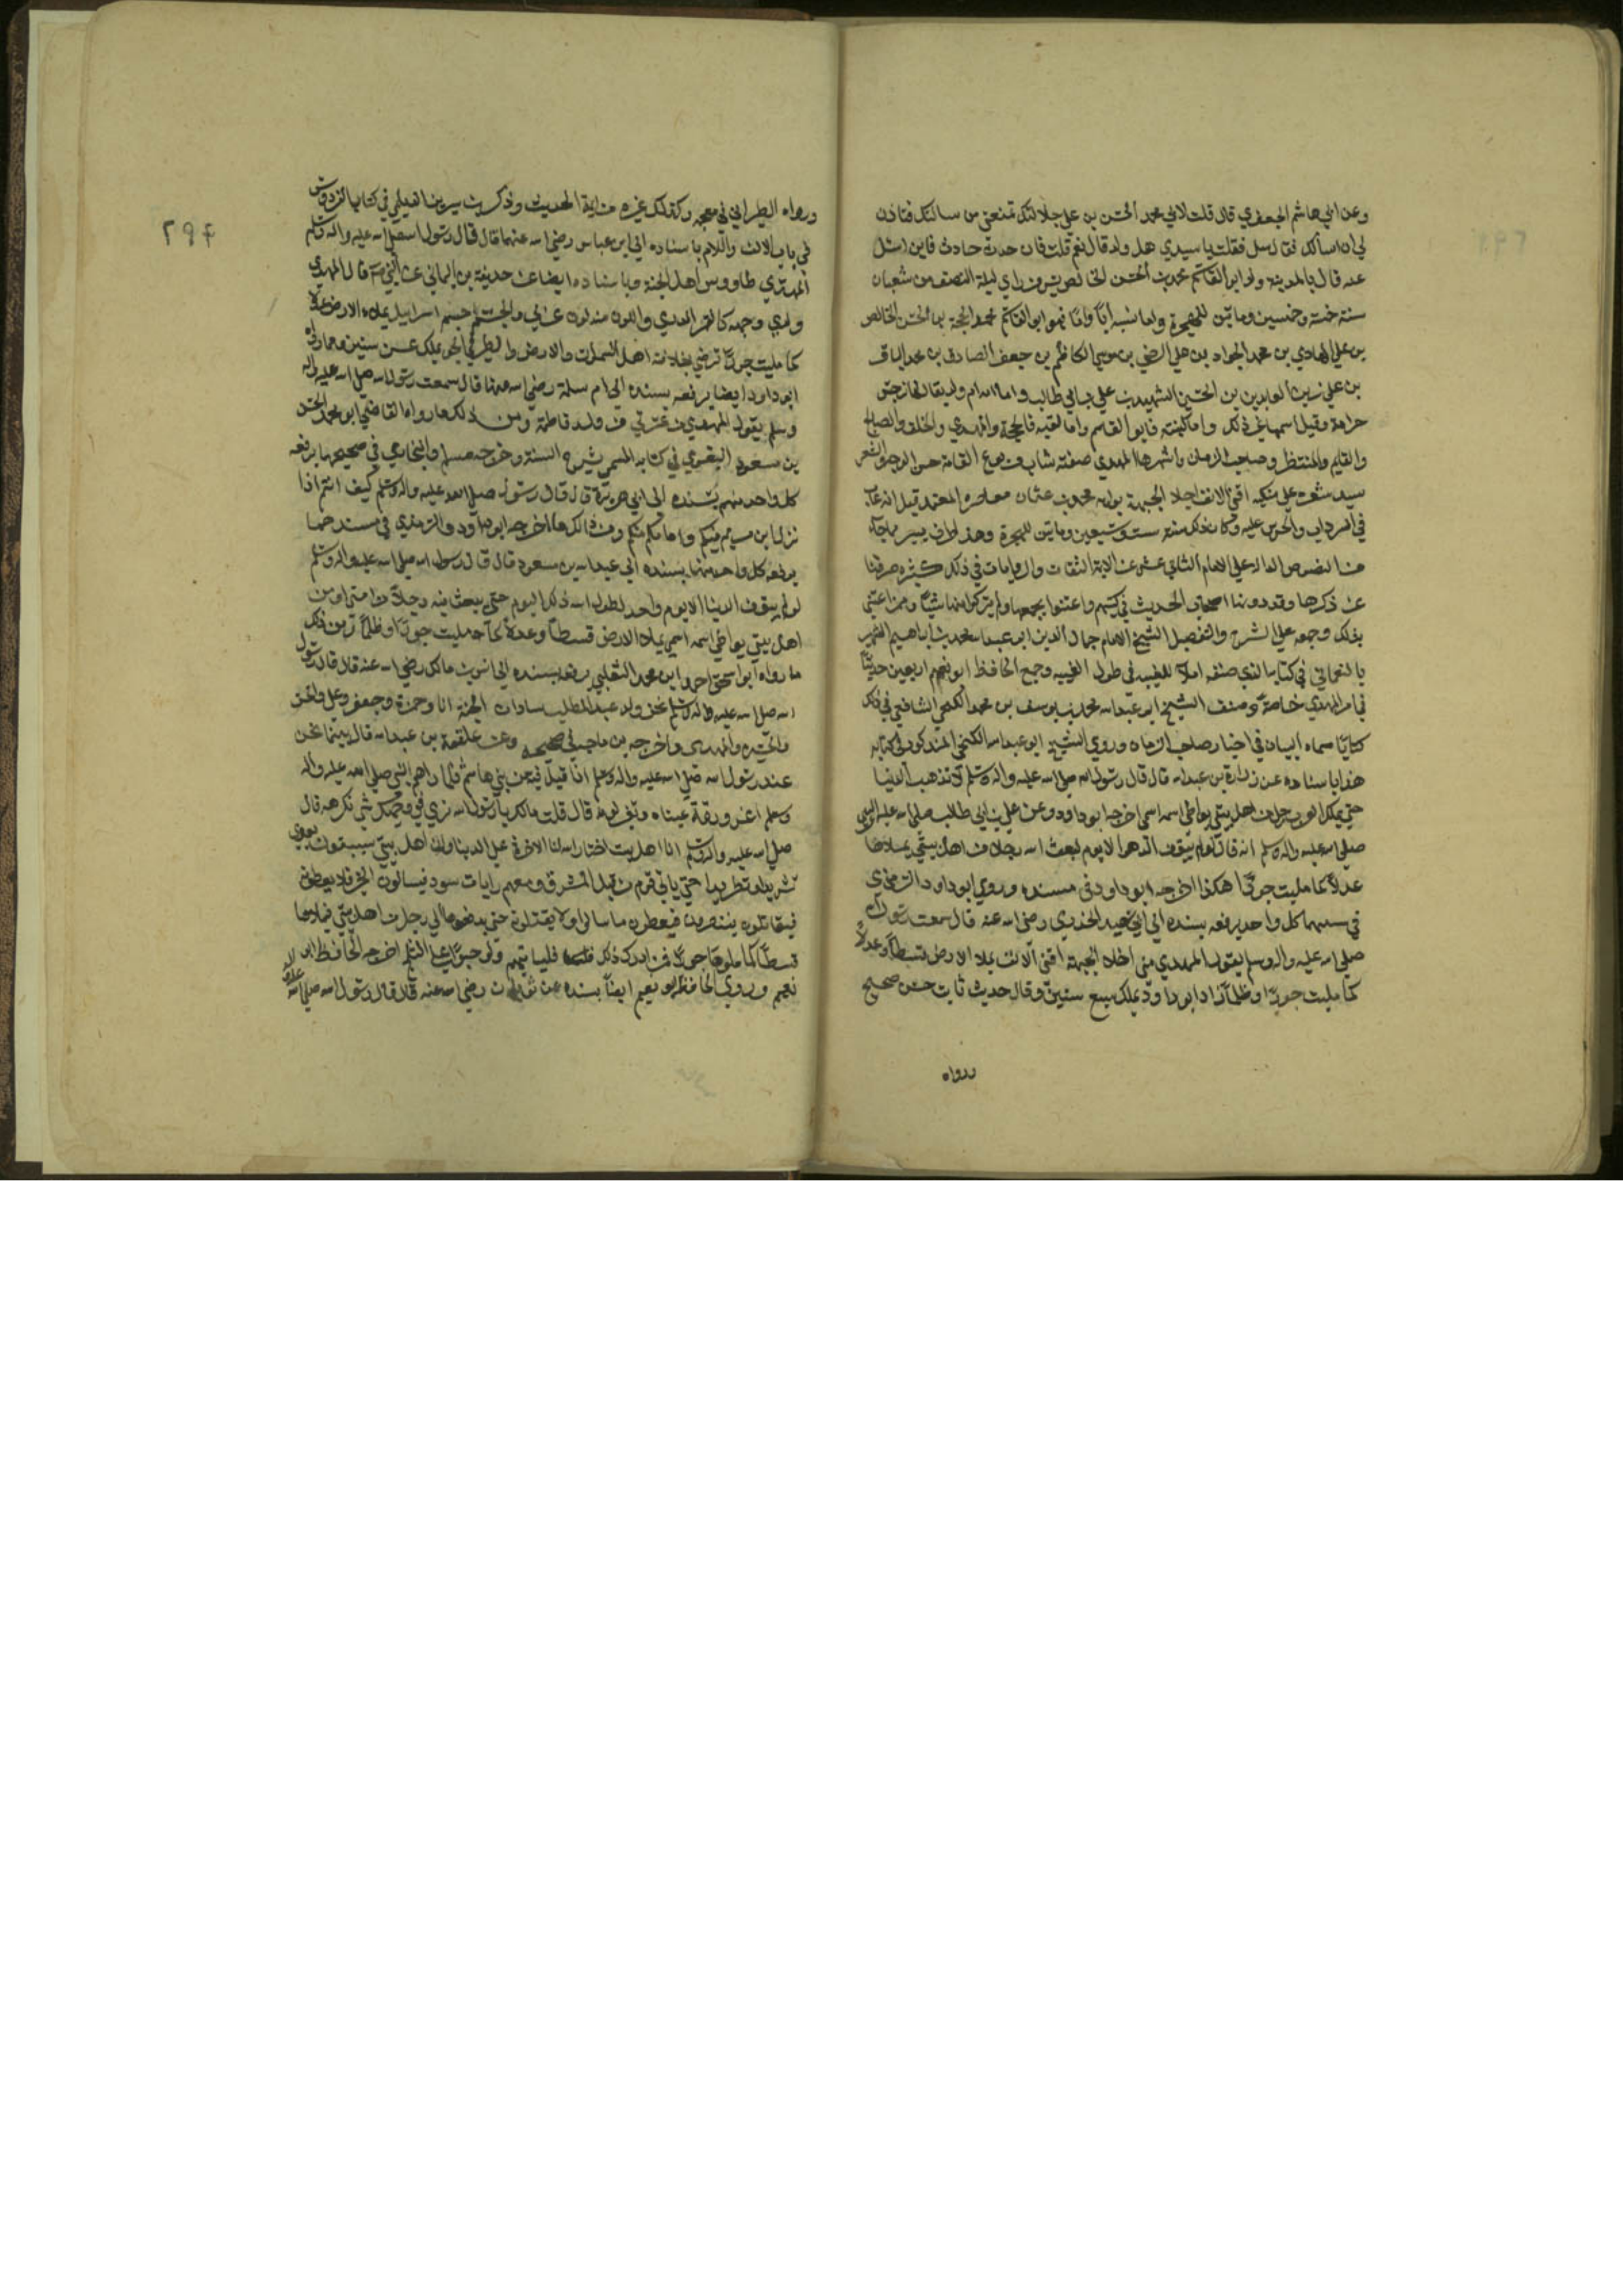 وعن ابي هاشم الجعفري قال قلت لابي محمد الحسن بن علي جلالتك تمنعني من مسالتك فتاذن
لي ان اسالك فقال سل فقلت يا سيدي هل لك ولد قال نعم قلت فان حدث حادث فاين اسئل
عنه قال بالمدينة ولد ابو القاسم محمد بن الحسن الخالص بسر من راي ليلة النصف من شعبان
سنة خمسة وخمسين ومايتين للهجرة واما نسبه أباً واماً فهو ابو القاسم محمد الحجة بن الحسن الخالص
بن علي الهادي بن محمد الجواد بن علي الرضي بن موسي الكاظم بن جعفر الصادق بن محمد الباقر
بن علي زين العابدين بن الحسين الشهيد بن علي بن ابي طالب واما امه ام ولد يقال لها نرجس
وقيل اسمها غير ذلك واما كنيته فابو القاسم واما لقبه فالحجة والمهدي والخلف والصالح
والقايم والمنتظر وصاحب الزمان واشهرها المهدي صفته شاب مربوع القامة حسن الوجه والشعر
يسيل شعره علي منكبيه اقني الانف اجلا الجبهة بوابه محمد بن عثمان معاصره المعتمد قيل انه غاب
في السرداب والحرس عليه وكان ذلك سنة ست وسبعين ومايتين للهجرة وهذا طرف يسير مما جاء
من النصوص الدالة علي الامام الثاني عشر عن الايمة الثقات والروايات في ذلك كثيره
عن ذكرها وقد دونها اصحاب الحديث في كتبهم واعتنوا بجمعها ولم يتركوا منها شيئاً وممن اعتني
بذلك وجمعه علي الشرح والتفصيل الشيخ الامام جمال الدين ابو عبد الله محمد بن ابراهيم الشهير
بالنعماني في كتابه الذي صنفه في طول الغيبه وجمع الحافظ ابو نعيم اربعين حديثاً
في امر المهدي خاصة وصنف الشيخ ابو عبد الله محمد بن يوسف بن محمد الكنجي الشافعي في ذلك
كتاباً سماه البيان في اخبار صاحب الزمان وروي الشيخ ابو عبد الله الكنجي المذكور في كتابه
هذا باسناده عن زر بن عبد الله قال قال رسول الله صلي الله عليه واله وسلم لا تذهب الدنيا
حتي يملك العرب رجل من اهل بيتي يواطي اسمه اسمي اخرجه ابو داود وعن علي بن ابي طالب
صلي الله عليه واله وسلم انه قال لو لم يبق من الدهر الا يوم لبعث الله رجلا من اهل بيتي يملاءها
عدلاً كما مليت جوراً هكذا اخرجه ابو داود في مسنده وروي ابو داود والترمذي
في سننهما كل واحد يرفعه بسنده الي ابي سعيد الخدري رضي الله عنه قال سمعت رسول الله
صلي الله عليه واله وسلم يقول المهدي مني اجلا الجبهة اقني الانف يملا الارض قسطاً وعدلاً
كما مليت جوراً وظلماً زاد ابو داود يملك سبع سنين وقال حديث ثابت حسن صحيح
ورواه
٢٩٤
ورواه الطبراني في معجمه وكذلك غيره من ايمة الحديث وذكر بن شيرويه الديلمي في كتاب الفردوس
في باب الالف واللام باسناده الي ابن عباس رضي الله عنهما قال قال رسول الله صلي الله عليه واله وسلم
المهدي طاووس اهل الجنة وباسناده ايضا عن حذيفة بن اليماني عن النبي قال المهدي
ولدي وجهه كالقمر الدري واللون منه لون عربي والجسم جسم اسرائيل يملاء الارض عدلا
كما مليت جوراً ترضي بخلافته اهل السموات والارض والطير في الجو يملك عشرين سنين ومما رواه
ابو داود ايضا يرفعه بسنده الي ام سلمة رضي الله عنها قال سمعت رسول الله صلي الله عليه واله
وسلم يقول المهدي من عترتي من ولد فاطمة ومن ذلك ما رواه القاضي ابو محمد الحسين
بن مسعود البغوي في كتابه المسمي بشرح السنة وخرجه مسلم والبخاري في صحيحهما يرفعه
كل واحد منهم بسنده الي ابي هريرة قال قال رسول الله صلي الله عليه واله وسلم كيف انتم اذا
نزل ابن مريم فيكم وامامكم منكم ومن ذلك ما اخرجه ابو داود والترمذي في مسندهما
يرفعه كل واحد منهما بسنده الي عبد الله بن مسعود قال قال رسول الله صلي الله عليه واله وسلم
لو لم يبق من الدنيا الا يوم واحد لطول الله ذلك اليوم حتي يبعث فيه رجلاً من امتي او من
اهل بيتي يواطي اسمه اسمي يملاء الارض قسطاً وعدلاً كما مليت جوراً وظلماً ومن ذلك
ما رواه ابو اسحق احمد ابن محمد الثعلبي يرفعه بسنده الي انس بن مالك رضي الله عنه قال قال رسول
الله صلي الله عليه واله وسلم نحن ولد عبد المطلب سادات الجنة انا وحمزة وجعفر وعلي والحسن
والحسين والمهدي واخرجه بن ماجه في صحيحه وعن علقمة بن عبد الله قال بينما نحن
عند رسول الله صلي الله عليه واله وسلم اذا قبل فتية من بني هاشم فلما راهم النبي صلي الله عليه واله
وسلم اغرورقة عيناه وتغير لونه قال قلت مالك يا رسول الله نري في وجهك شي نكرهه قال
صلي الله عليه واله وسلم انا اهل بيت اختار الله لنا الاخرة علي الدنيا وان اهل بيتي سيلقون بعدي
تشريدا وتطريدا حتي ياتي قوم من قبل المشرق ومعهم رايات سود فيسالون الخير فلا يعطون
فيقاتلون ينتصرون فيعطون ما سالوا ولا يقبلون حتي يدفعوها الي رجل من اهل بيتي فيملاءها
قسطاً كما ملوها جوراً فمن ادرك ذلك فليأتيهم ولو حبواً علي الثلج اخرجه الحافظ ابو
نعيم وروي الحافظ ابو نعيم ايضاً بسنده عن ثوبان رضي الله عنه قال قال رسول الله صلي الله